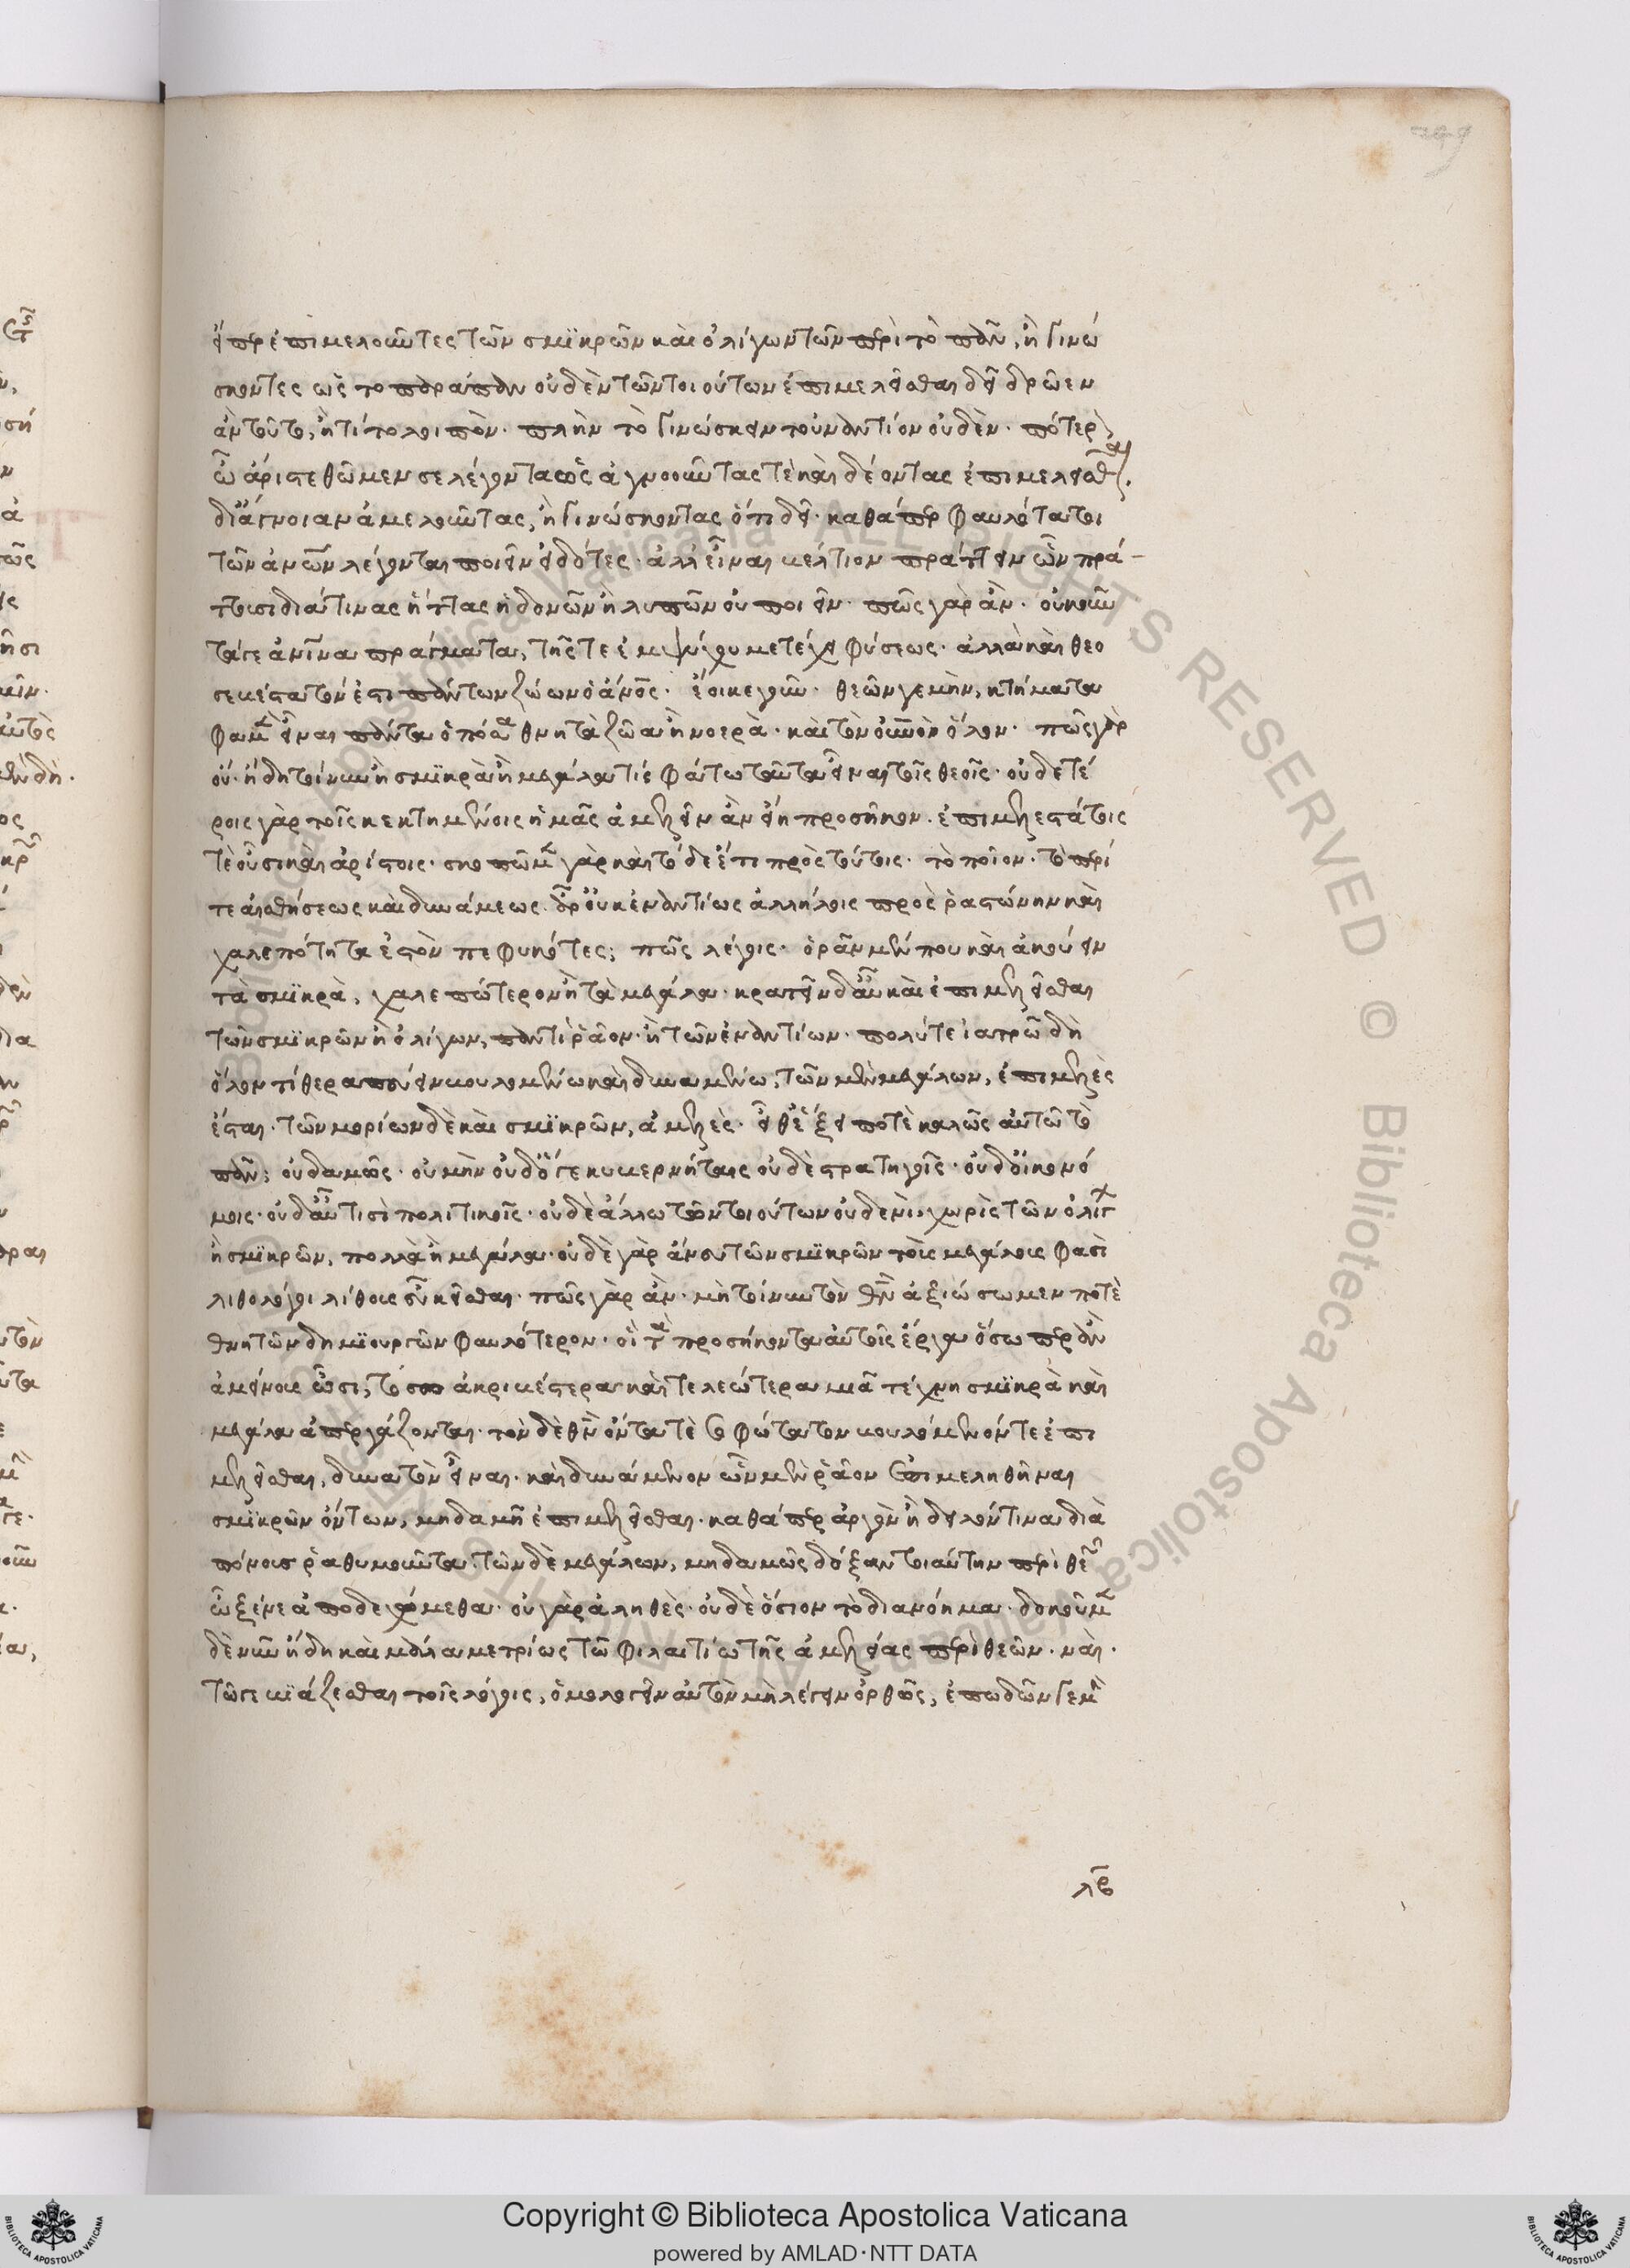 εἴπερ ἐπιμελοῦντες τῶν σμϊκρῶν καὶ ὀλίγων τῶν περὶ τὸ πᾶν, ἢ γινώ
σκοντες ὡς τοπαράπαν οὐδὲν τῶν τοιούτων ἐπιμελεῖσθαι δεῖ δρῶεν
ἂν τοῦτο, ἢ τί τολοιπόν. πλὴν τὸ γινώσκειν τοὐναντίον οὐδέν. πότερ
ὦ ἄριστε θῶμεν σε λέγοντα ὡς ἀγνοοῦντάς τε καὶ δέοντας ἐπιμελεῖσθαι.
δι' ἄγνοιαν ἀμελοῦντας, ἢ γινώσκοντας ὅτι δεῖ. καθάπερ φαυλότατοι
τῶν ἀνων λέγονται ποιεῖν εἰδότες. ἀλλ' εἶναι βέλτιον πράττειν ὧν πρά-
τουσι διά τινας ἥττας ἡδονῶν ἢ λυπῶν οὐ ποιεῖν. πῶς γὰρ ἄν. οὐκοῦν
τά γε ἀνινα πράγματα, τῆς τε ἐμψύχου μετέχει φύσεως. ἀλλὰ καὶ θεο
σεβέστατόν ἐστι πάντων ζώων ὁ ἄνος. ἔοικε γοῦν. θεῶν γε μὴν, κτήματα
φαμὲν εἶναι πάντα ὁπόσα θνητὰ ζῶα ἢ νοερὰ. καὶ τὸν οὐνὸν ὅλον. πῶς γὰρ
οὔ. ἤδη τοίνυν ἢ σμϊκρὰ ἢ μεγάλα τίς φάτω ταῦτα εἶναι τοῖς θεοῖς. οὐδετέ
ροις γὰρ τοῖς κεκτημένοις ἡμᾶς ἀμελεῖν ἂν εἴη προσῆκον. ἐπιμελεστάτοις
τὲ οὖσι καὶ ἀρίστοις. σκοπῶμεν γὰρ καὶ τόδε ἔτι πρὸς τούτοις. τὸ ποῖον. τὸ περί
τε αἰσθήσεως καὶ δυνάμεως ἆρ' οὐκ ἐναντίως ἀλλήλοις πρὸς ῥαστώνην καὶ
χαλεπότητα ἐστὸν πεφυκότες; πῶς λέγεις. ὁρᾶν μέν που καὶ ἀκούειν
τὰ σμϊκρὰ, χαλεπώτερον ἢ τὰ μεγάλα. κρατεῖν δ' αὖ καὶ ἐπιμελεῖσθαι
τῶν σμϊκρῶν ἢ ὀλίγων, παντὶ ῥᾶον. ἢ τῶν ἐναντίων. πολύ τε ἰατρῶ δὴ
ὅλον τί θεραπεύειν βουλομένω καὶ δυναμένω, τῶν μὲν μεγάλων, ἐπιμελὲς
ἔσται. τῶν μορίων δὲ καὶ σμϊκρῶν, ἀμελές. εἶθ' ἕξει ποτὲ καλῶς αὐτῶ τὸ
πᾶν; οὐδαμῶς. οὐ μὴν οὐδό γε κυβερνήταις οὐδὲ στρατηγοῖς. οὐδ' οἰκονό
μοις. οὐδ' αὖ τισὶ πολιτικοῖς. οὐδὲ ἄλλω τῶν τοιούτων οὐδενὶ. χωρὶς τῶν ὀλίγ
ἢ σμϊκρῶν, πολλὰ ἢ μεγάλα. οὐδὲ γὰρ ἄνευ τῶν σμϊκρῶν τοὺς μεγάλους φασὶ
λιθολόγοι λίθους εὖ κεῖσθαι. πῶς γὰρ ἄν. μὴ τοίνυν τὸν θν ἀξιώσωμεν ποτὲ
θνητῶν δημϊουργῶν φαυλότερον. οἳ τὰ προσήκοντα αὐτοῖς ἔργα ὅσω περ ἂν
ἀμείνους ὦσι, τόσω ἀκριβέστερα καὶ τελεώτερα μιᾶ τέχνη σμϊκρὰ καὶ
μεγάλα ἀπεργάζονται. τὸν δὲ θν ὄντα τὲ σοφώτατον βουλόμενόν τε ἐπι
μελεῖσθαι, δυνατὸν εἶναι. καὶ δυνάμενον ὧν μὲν ῥᾶον ἐπιμεληθῆναι
σμϊκρῶν ὄντων, μηδαμῆ ἐπιμελεῖσθαι. καθάπερ ἀργὸν ἢ δειλόν τινα διὰ
πόνους ῥαθυμοῦντα. τῶν δὲ μεγάλων, μηδαμῶς δόξαν τοιαύτην περὶ θεῶν
ὦ ξένε ἀποδεχόμεθα. οὐ γὰρ ἀληθὲς. οὐδὲ ὅσιον τὸ διανόημα. δοκοῦμεν
δὲ νῦν ἤδη καὶ μάλα μετρίως τῶ φιλαιτίω τῆς ἀμελείας περὶ θεῶν. ναί.
τῶ γε βϊάζεσθαι τοῖς λόγοις, ὁμολογεῖν αὐτὸν μὴ λέγειν ὀρθῶς, ἐπωδῶν γε μὴν
Copyright © Biblioteca Apostolica Vaticana
powered by AMLAD·NTT DATA